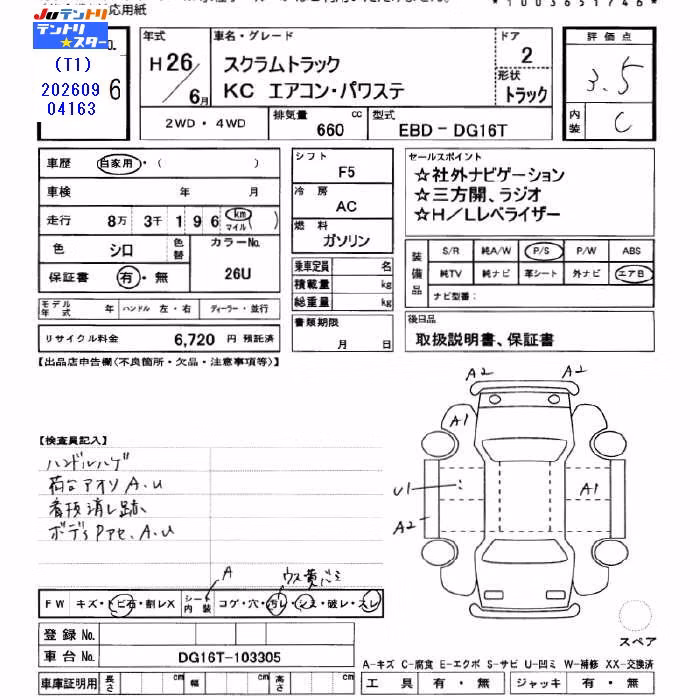 応用紙
Juテントリ
テントリ★スター
(T1)
202609
04163
No.
6
年式
H26/6月
車名・グレード
スクラムトラック
KC エアコン・パワステ
ドア
2
形状
トラック
評価点
3.5
内装
C
2WD・4WD
排気量
660 cc
型式
EBD-DG16T
車歴 自家用・( )
車検 年 月
走行 8万 3千 1 9 6 km マイル( )
色 シロ
色替
カラーNo.
26U
保証書 有・無
モデル年式 年 ハンドル 左・右 ディーラー・並行
リサイクル料金 6,720 円 預託済
シフト
F5
冷房
AC
燃料
ガソリン
乗車定員 名
積載量 kg
総重量 kg
書類期限
月 日
セールスポイント
☆社外ナビゲーション
☆三方開、ラジオ
☆H/Lレベライザー
装備品
S/R 純A/W P/S P/W ABS
純TV 純ナビ 革シート 外ナビ エアB
ナビ型番:
後日品
取扱説明書、保証書
【出品店申告欄(不良箇所・欠品・注意事項等)】
【検査員記入】
ハンドルハゲ
荷台アオリA.U
看板消し跡、
ボデーPアセ、A.U
A2
A2
A1
U1
A1
A2
A
ウス黄バミ
FW キズ・トビ石・割レX
シート内装
コゲ・穴・汚レ・シミ・破レ・スレ
登録No.
車台No. DG16T-103305
車庫証明用 長さ cm 幅 cm 高さ cm
スペア
A-キズ C-腐食 E-エクボ S-サビ U-凹ミ W-補修 XX-交換済
工具 有・無 ジャッキ 有・無